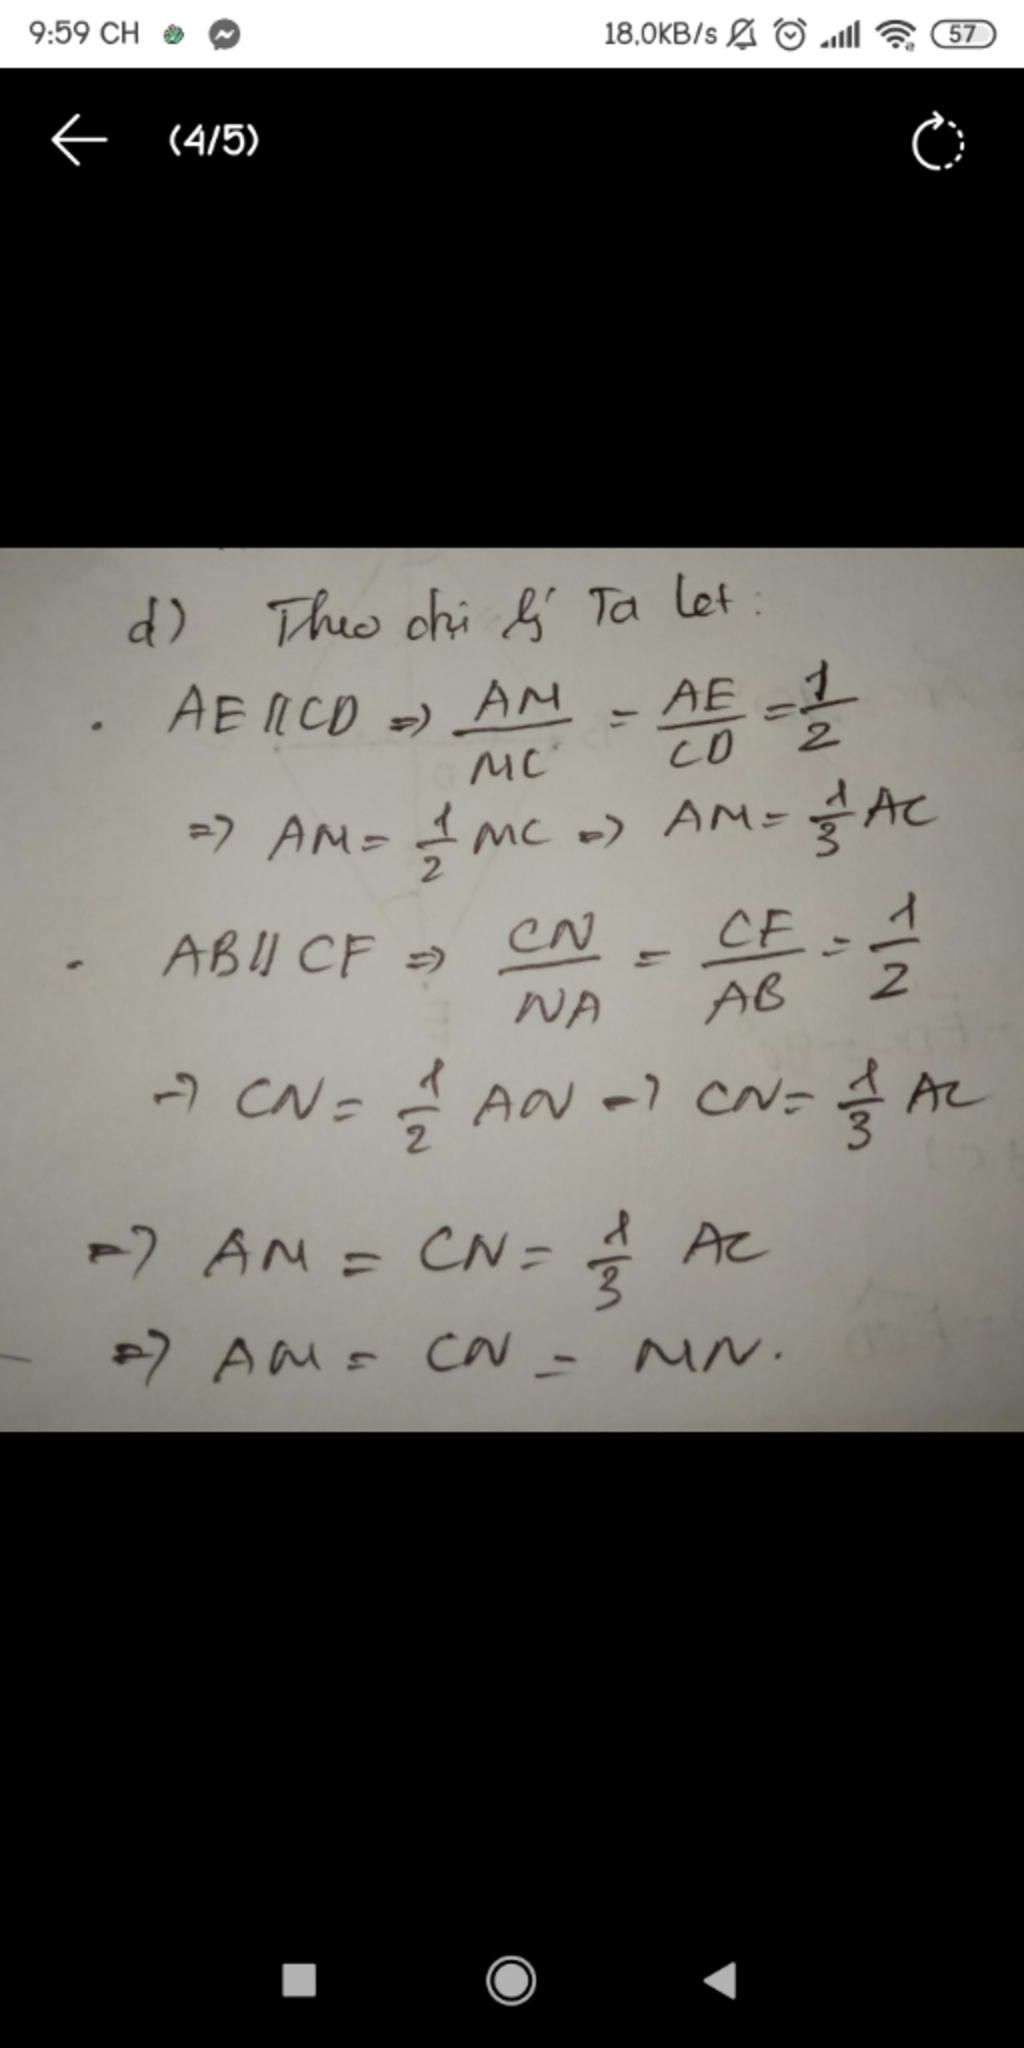 9:59 CH 18,0KB/s 57
(4/5)
d) Theo định lý Ta let:
. AE // CD => AM/MC = AE/CD = 1/2
=> AM = 1/2 MC => AM = 1/3 AC
. AB // CF => CN/NA = CF/AB = 1/2
=> CN = 1/2 AN => CN = 1/3 AC
=> AM = CN = 1/3 AC
=> AM = CN = MN.